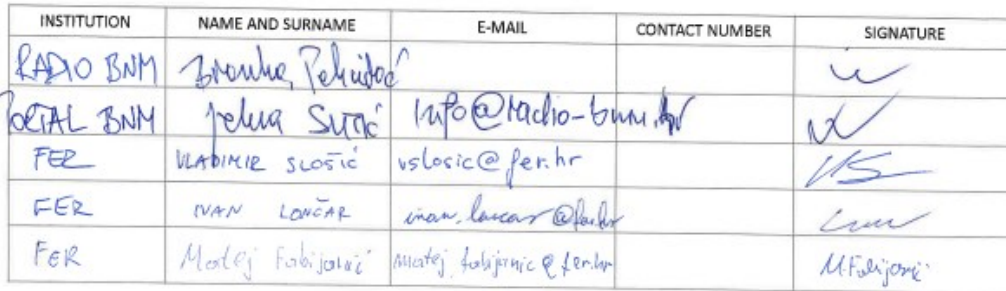 INSTITUTION NAME AND SURNAME E-MAIL CONTACT NUMBER SIGNATURE
RADIO BNM Branka
PORTAL BNM Jelena info@radio-bnm.hr
FER VLADIMIR SLOŠIĆ vslosic@fer.hr VS
FER IVAN LONČAR ivan.loncar@fer.hr
FER Matej Fabijanić matej.fabijanic@fer.hr M.Fabijanić